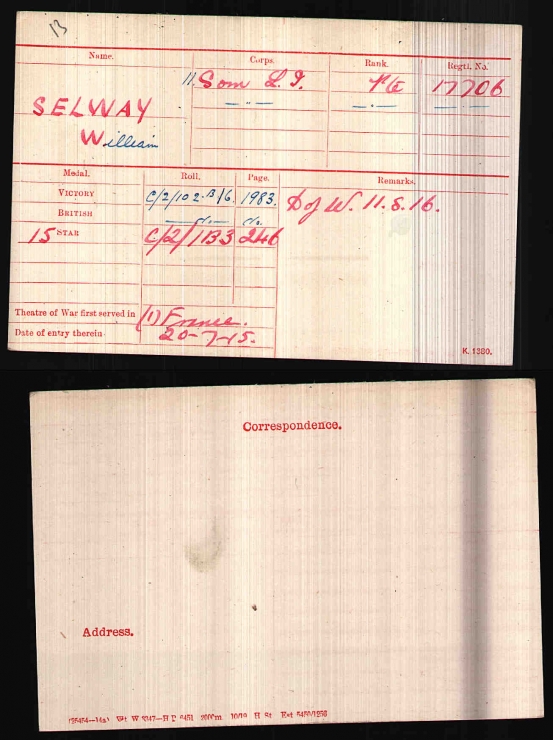 13
Name. Corps. Rank. Regtl. No.
11. Som L. I. Pte 17706
— " — — . — — " —
SELWAY
William
Medal. Roll. Page. Remarks.
VICTORY C/2/102.B/6. 1983. D of W. 11.8.16.
BRITISH — do — do.
15 STAR C/2/1B3 246
Theatre of War first served in (1) France.
Date of entry therein 20-7-15.
K. 1380.
Correspondence.
Address.